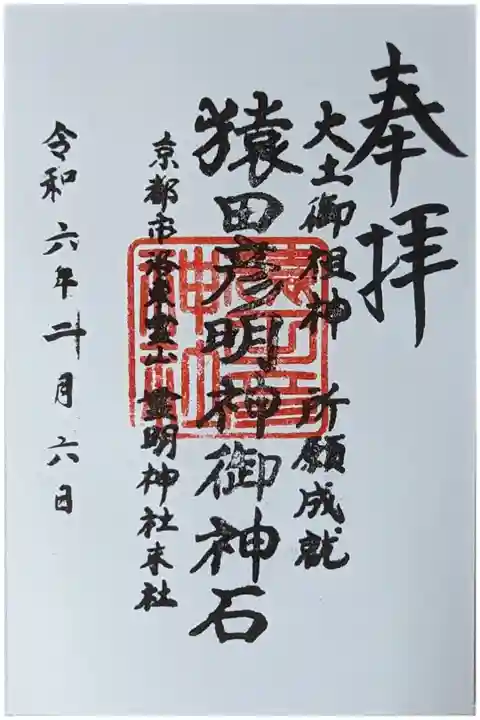 奉拝
大土御祖神 所願成就
猿田彦明神御神石
京都市洛東霊山 霊明神社末社
令和 六年 月 六日